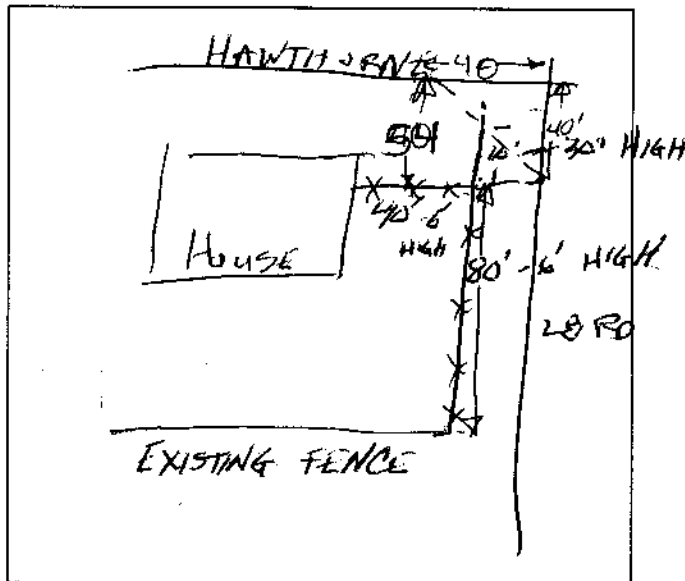 HAWTHORNE 40
50'
40'
10' - 30" HIGH
40' - 6'
HIGH
HOUSE
80' - 6' HIGH
28 RD
EXISTING FENCE